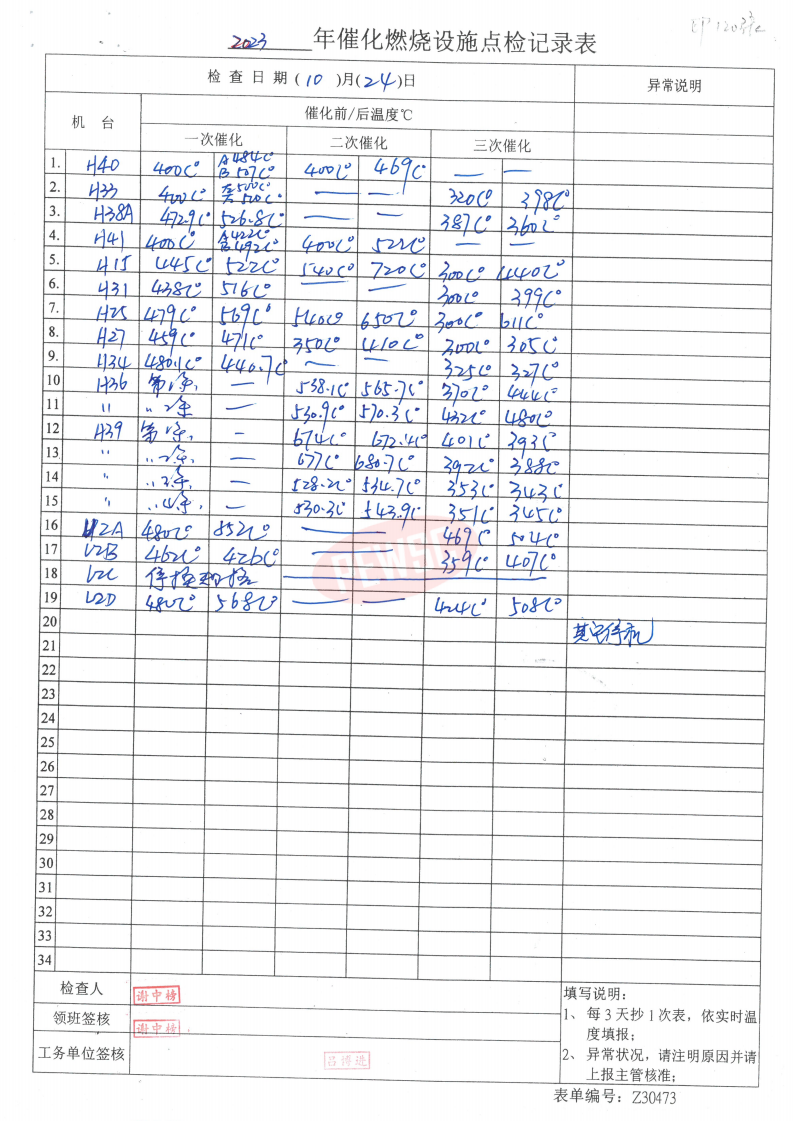 2023 年催化燃烧设施点检记录表
检 查 日 期 ( 10 )月( 24 )日 异常说明
机 台 催化前/后温度℃
一次催化 二次催化 三次催化
1. H40 400C° A484C° B507C° 400C° 469C° — —
2. H33 400C° 500C° 500C° — — 320C° 398C°
3. H38A 472.9C° 526.8C° — — 387C° 360C°
4. H41 400C° A422C° B492C° 400C° 522C° — —
5. H15 445C° 522C° 540C° 720C° 300C° 440C°
6. H31 438C° 516C° — — 300C° 399C°
7. H25 479C° 569C° 540C° 650C° 300C° 611C°
8. H27 459C° 471C° 350C° 410C° 300C° 305C°
9. H34 480.1C° 440.7C° — — 325C° 327C°
10 H36 第1条, — 538.1C° 565.7C° 370C° 444C°
11 〃 〃2条 — 530.9C° 570.3C° 432C° 480C°
12 H39 第1条, — 674C° 672.4C° 401C° 393C°
13 〃 〃2条, — 677C° 680.7C° 392C° 388C°
14 〃 〃3条, — 528.2C° 534.7C° 353C° 343C°
15 〃 〃4条, — 530.3C° 543.9C° 351C° 345C°
16 U2A 480C° 852C° — 469C° 504C°
17 U2B 462C° 426C° — 359C° 407C°
18 U2C 停
19 U2D 480C° 568C° — — 424C° 508C°
20 其它停机
21
22
23
24
25
26
27
28
29
30
31
32
33
34
检查人 谢中榜
领班签核 谢中榜
工务单位签核 吕博进
填写说明:
1、 每 3 天抄 1 次表,依实时温
度填报;
2、 异常状况,请注明原因并请
上报主管核准;
表单编号:Z30473